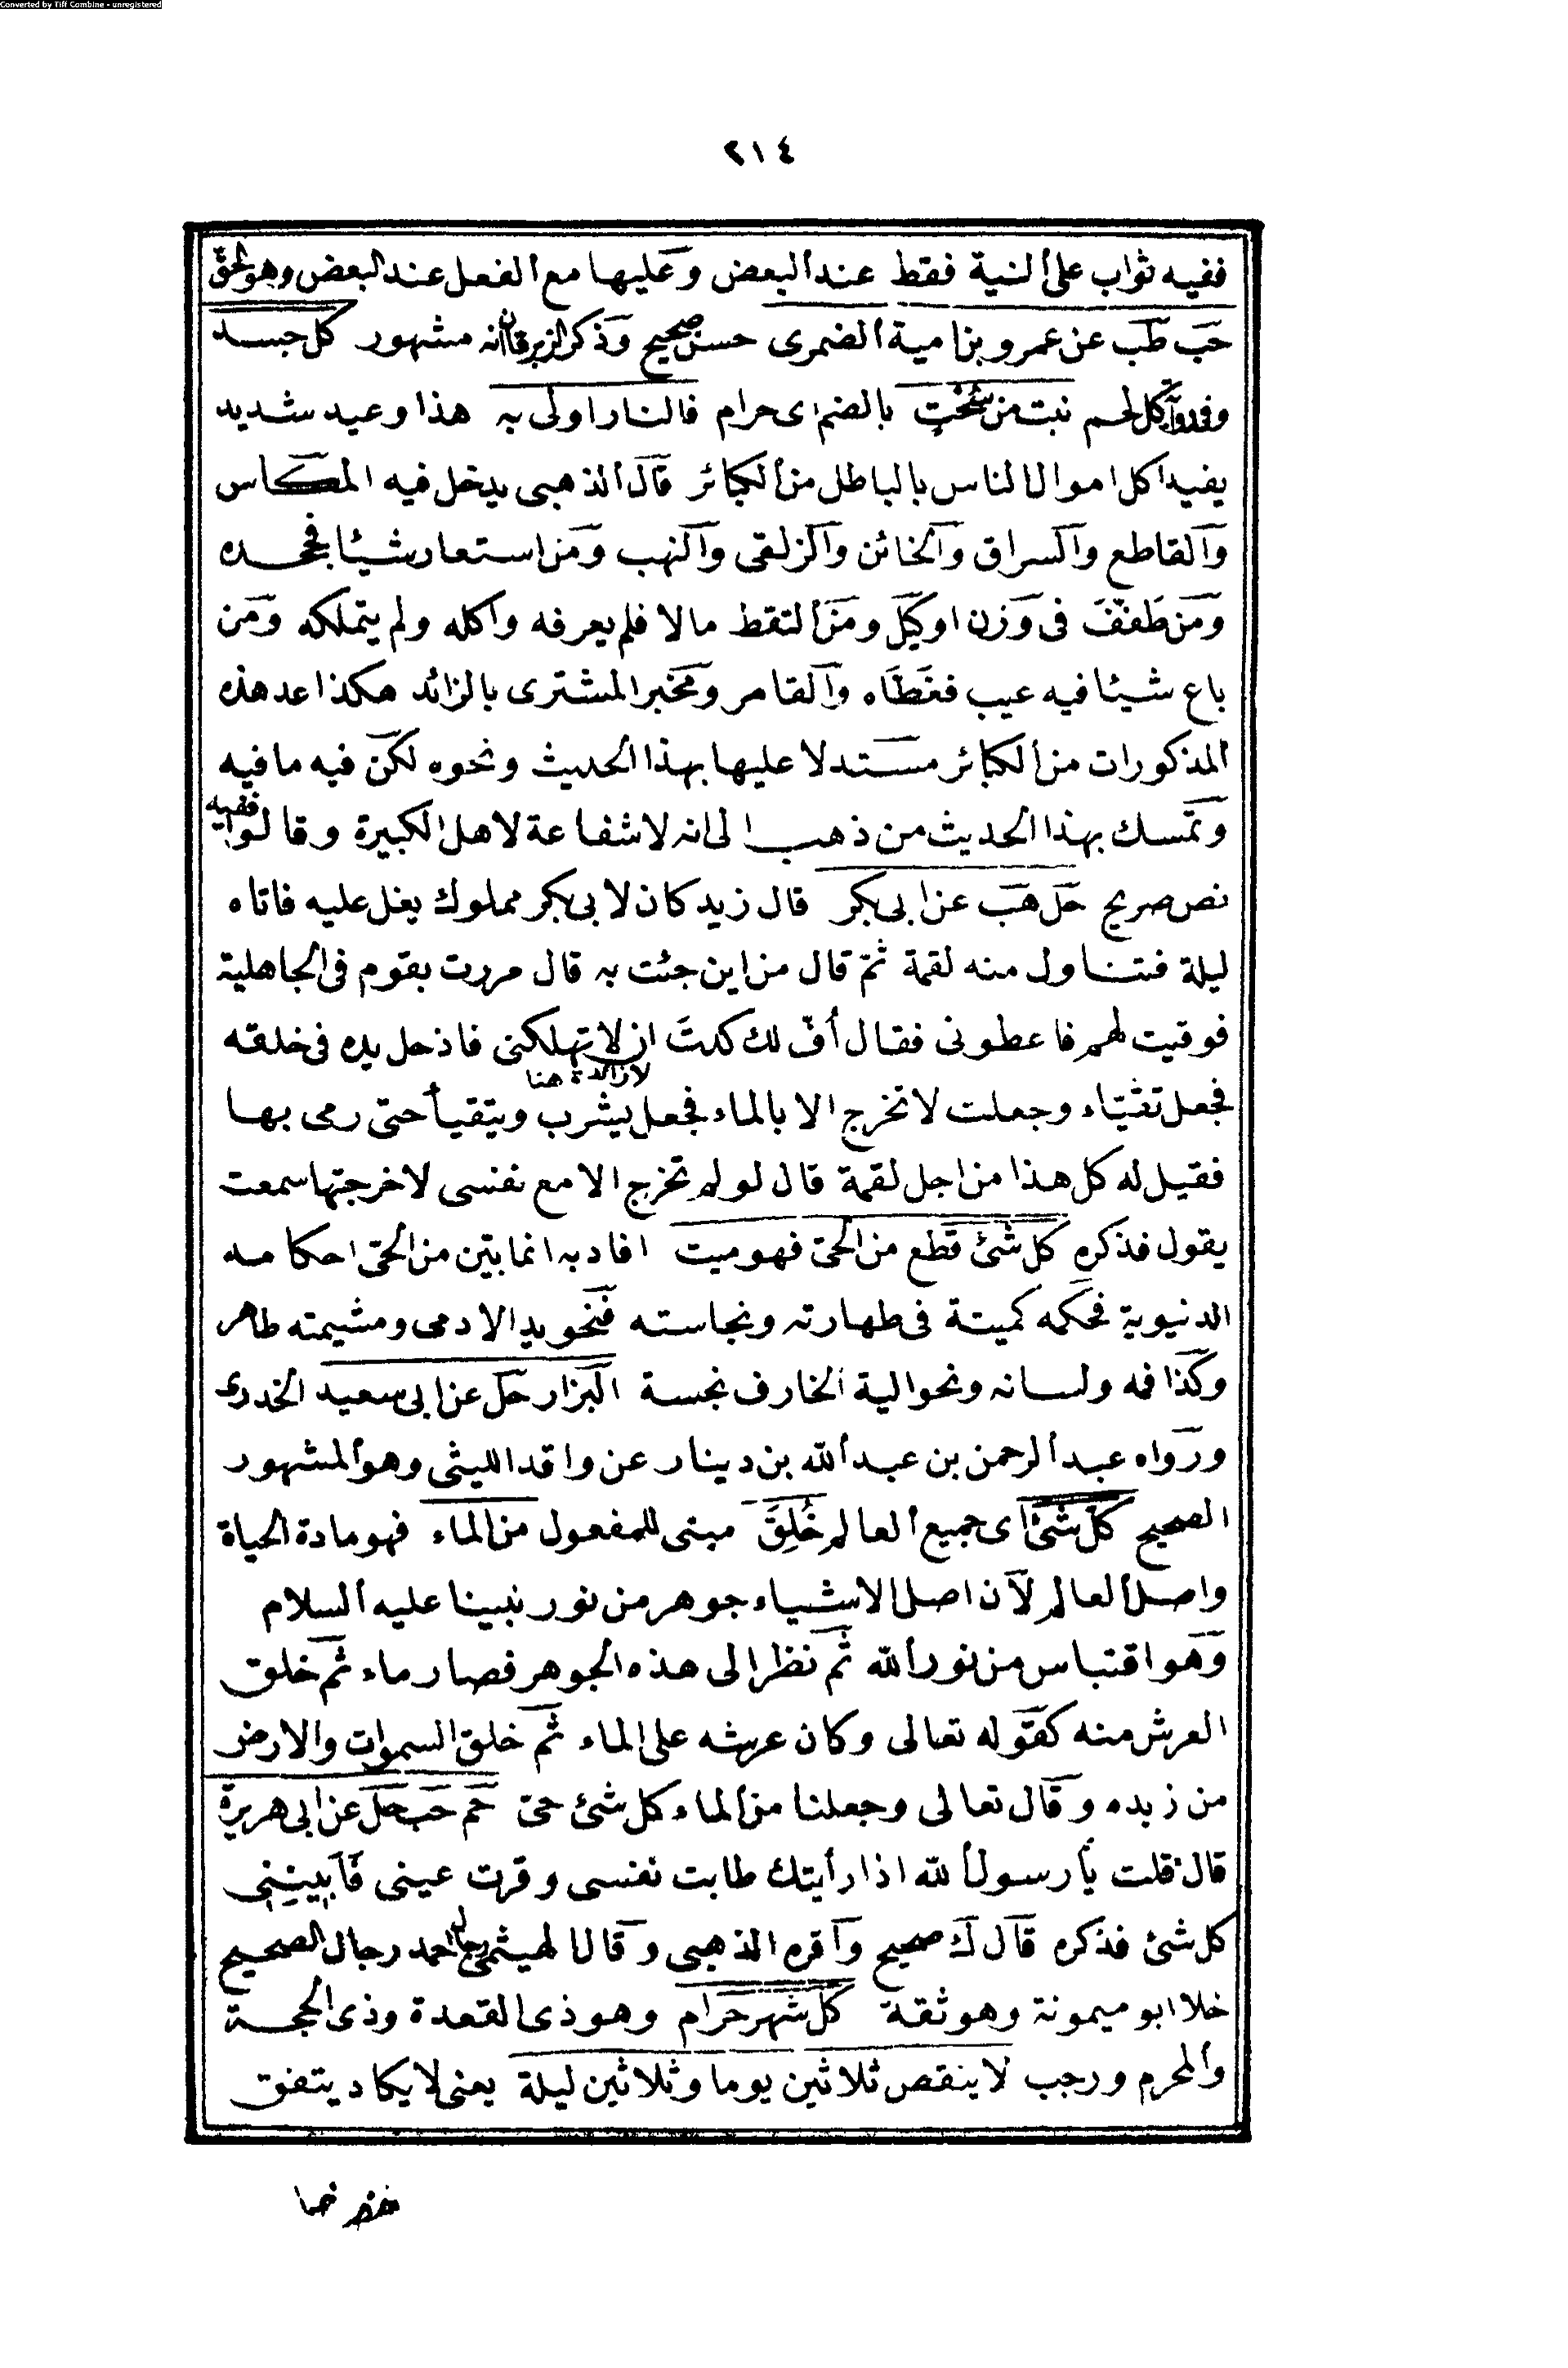 Converted by Tiff Combine - unregistered
٢١٤
ففيه ثواب على النية فقط عند البعض وعليها مع الفعل عند البعض وهو الحق
حب طب عن عمرو بن امية الضمرى حسن صحيح وذكر الزبرقان انه مشهور كل جسد
وفى رواية كل لحم نبت من سُحْتٍ بالضم اى حرام فالنار اولى به هذا وعيد شديد
يفيد اكل اموال الناس بالباطل من الكبائر قال الذهبى يدخل فيه المكاس
والقاطع والسراق والخائن والزلقى والنهب ومن استعار شيئا فجحده
ومن طَفَّفَ فى وزن او كيل ومن التقط مالا فلم يعرفه واكله ولم يتملكه ومن
باع شيئا فيه عيب فغَطَّاه والقامر ومخبر المشترى بالزائد هكذا عد هذه
المذكورات من الكبائر مستدلا عليها بهذا الحديث ونحوه لكن فيه ما فيه
وتمسك بهذا الحديث من ذهب الى انه لا شفاعة لاهل الكبيرة وقالوا ففيه
نص صريح حل هب عن ابى بكر قال زيد كان لابى بكر مملوك يغل عليه فاتاه
ليلة فتناول منه لقمة ثم قال من اين جئت به قال مررت بقوم فى الجاهلية
فوقيت لهم فاعطونى فقال أفّ لك كدتَ ان لا تهلكنى فاذحل يده فى خلقه
لا زائدة هنا
فجعل تقيّاء وجعلت لا تخرج الا بالماء فجعل يشرب ويتقيأ حتى رمى بها
فقيل له كل هذا من اجل لقمة قال لو لم تخرج الا مع نفسى لاخرجتها سمعت
يقول فذكره كل شئ قطع من الحى فهو ميت افاد به انما بتين من الحى احكامه
الدنيوية فحكمه كميتة فى طهارته ونجاسته فنحو يد الادمى ومشيمته طاهر
وكذا فمه ولسانه ونحو الية الخارف نجسة البزار حل عن ابى سعيد الخدرى
ورواه عبد الرحمن بن عبد الله بن دينار عن واقد الليثى وهو المشهور
الصحيح كل شئ اى جميع العالم خُلِقَ مبنى للمفعول من الماء فهو مادة الحياة
واصل العالم لان اصل الاشياء جوهر من نور نبينا عليه السلام
وهو اقتباس من نور الله ثم نظر الى هذه الجوهر فصار ماء ثم خلق
العرش منه كقوله تعالى وكان عرشه على الماء ثم خلق السموات والارض
من زبده وقال تعالى وجعلنا من الماء كل شئ حى حم حب حل عن ابى هريرة
قال قلت يا رسول الله اذا رأيتك طابت نفسى وقرت عينى فابينِنى
كل شئ فذكره قال ك صحيح واقره الذهبى وقال الهيثمى رجال احمد رجال الصحيح
خلا ابو ميمونة وهو ثقة كل شهر حرام وهو ذى القعدة وذى الحجة
والمحرم ورجب لا ينقص ثلاثين يوما وثلاثين ليلة يعنى لا يكاد يتفق